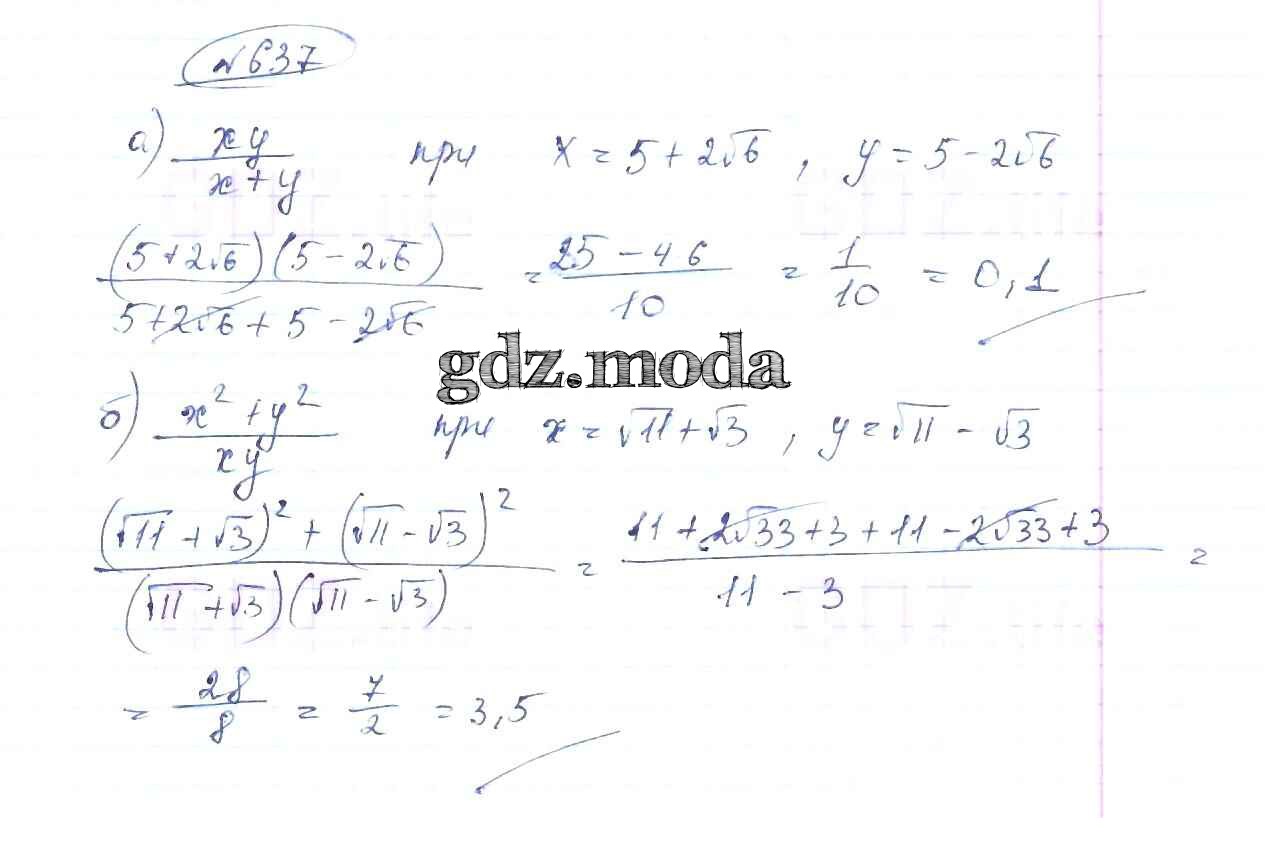 №637
а) xy/(x+y) при x = 5+2√6 , y = 5-2√6
(5+2√6)(5-2√6)/(5+2√6+5-2√6) = (25-4·6)/10 = 1/10 = 0,1
gdz.moda
б) (x²+y²)/(xy) при x = √11+√3 , y = √11-√3
((√11+√3)²+(√11-√3)²)/((√11+√3)(√11-√3)) = (11+2√33+3+11-2√33+3)/(11-3) =
= 28/8 = 7/2 = 3,5